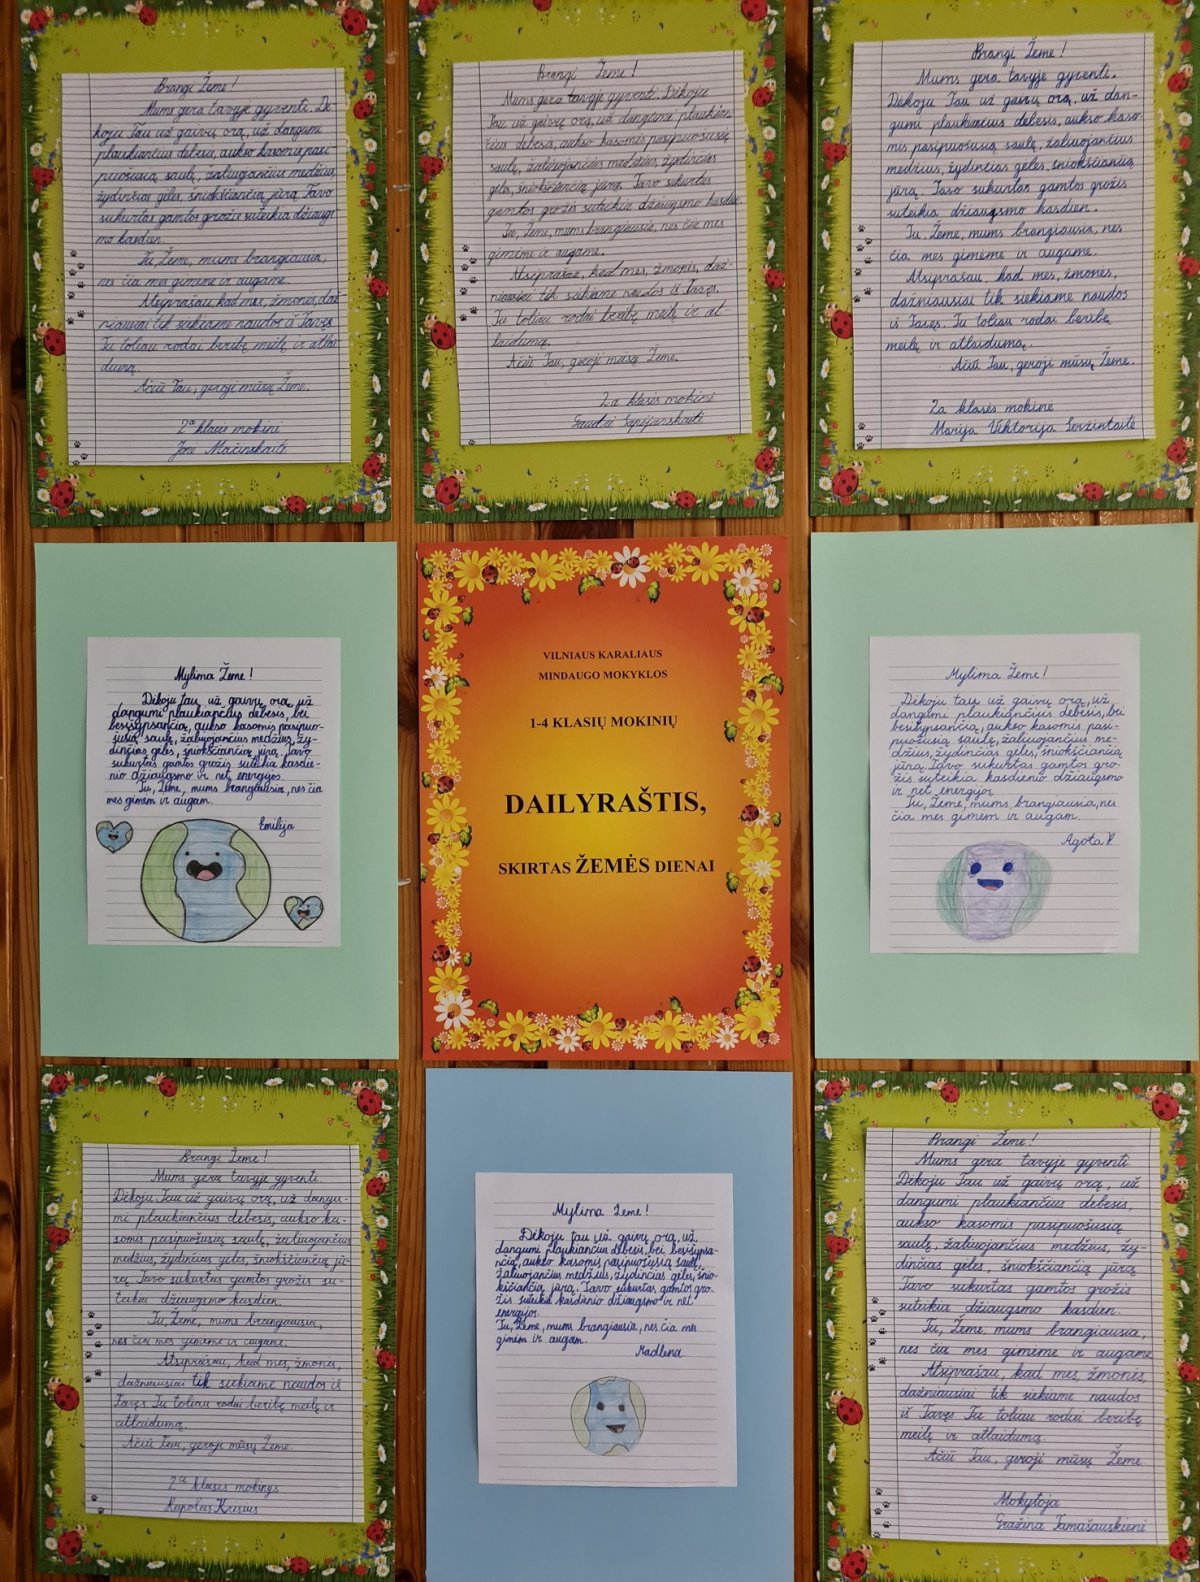 Brangi Žeme!
Mums gera tavyje gyventi. Dė-
koju Tau už gaivų orą, už dangumi
plaukiančius debesis, aukso kasomis pasi-
puošusią saulę, žaliuojančius medžius,
žydinčias gėles, šniokščiančią jūrą. Tavo
sukurtas gamtos grožis suteikia džiaugs-
mo kasdien.
Tu, Žeme, mums brangiausia,
nes čia mes gimėme ir augame.
Atsiprašau, kad mes, žmonės, daž
niausiai tik siekiame naudos iš Tavęs.
Tu toliau rodai beribę meilę ir atlai
dumą.
Ačiū Tau, geroji mūsų Žeme.
2a klasės mokinė
Jonė Mačinskaitė
Brangi Žeme!
Mums gera tavyje gyventi. Dėkoju
Tau už gaivų orą, už dangumi plaukian-
čius debesis, aukso kasomis pasipuošusią
saulę, žaliuojančius medžius, žydinčias
gėles, šniokščiančią jūrą. Tavo sukurtas
gamtos grožis suteikia džiaugsmo kasdien.
Tu, Žeme, mums brangiausia, nes čia mes
gimėme ir augame.
Atsiprašau, kad mes, žmonės, daž-
niausiai tik siekiame naudos iš Tavęs.
Tu toliau rodai beribę meilę ir at-
laidumą.
Ačiū Tau, geroji mūsų Žeme.
2a klasės mokinė
Brangi Žeme!
Mums gera tavyje gyventi.
Dėkoju Tau už gaivų orą, už dan-
gumi plaukiančius debesis, aukso kaso-
mis pasipuošusią saulę, žaliuojančius
medžius, žydinčias gėles, šniokščiančią
jūrą. Tavo sukurtas gamtos grožis
suteikia džiaugsmo kasdien.
Tu, Žeme, mums brangiausia, nes
čia mes gimėme ir augame.
Atsiprašau, kad mes, žmonės,
dažniausiai tik siekiame naudos
iš Tavęs. Tu toliau rodai beribę
meilę ir atlaidumą.
Ačiū Tau, geroji mūsų Žeme.
2a klasės mokinė
Marija Viktorija Seržintaitė
Mylima Žeme!
Dėkoju tau už gaivų orą, už
dangumi plaukiančius debesis, bei
besišypsančią, aukso kasomis pasipuo-
šusią saulę, žaliuojančius medžius, žy-
dinčias gėles, šniokščiančią jūrą. Tavo
sukurtas gamtos grožis suteikia kasdie-
nio džiaugsmo ir net energijos.
Tu, Žeme, mums brangiausia, nes čia
mes gimėm ir augam.
Emilija
VILNIAUS KARALIAUS
MINDAUGO MOKYKLOS
1-4 KLASIŲ MOKINIŲ
DAILYRAŠTIS,
SKIRTAS ŽEMĖS DIENAI
Mylima Žeme!
Dėkoju tau už gaivų orą, už
dangumi plaukiančius debesis, bei
besišypsančią, aukso kasomis pasi-
puošusią saulę, žaliuojančius me-
džius, žydinčias gėles, šniokščiančią
jūrą. Tavo sukurtas gamtos gro-
žis suteikia kasdienio džiaugsmo
ir net energijos.
Tu, Žeme, mums, brangiausia, nes
čia mes gimėm ir augam.
Agota P.
Brangi Žeme!
Mums gera tavyje gyventi
Dėkoju Tau už gaivų orą, už dangu-
mi plaukiančius debesis, aukso ka-
somis pasipuošusią saulę, žaliuojančius
medžius, žydinčias gėles, šniokščiančią jū-
rą. Tavo sukurtas gamtos grožis su-
teikia džiaugsmo kasdien.
Tu, Žeme, mums brangiausia,
nes čia mes gimėme ir augame.
Atsiprašau, kad mes, žmonės,
dažniausiai tik siekiame naudos iš
Tavęs Tu toliau rodai beribę meilę ir
atlaidumą.
Ačiū Tau, geroji mūsų Žeme
2a klasės mokinys
Mylima Žeme!
Dėkoju tau už gaivų orą, už
dangumi plaukiančius debesis, bei besišypsa-
nčią, aukso kasomis pasipuošusią saulę,
žaliuojančius medžius, žydinčias gėles, šnio-
kščiančią jūrą. Tavo sukurtas gamtos gro-
žis suteikia kasdienio džiaugsmo ir net
energijos.
Tu, Žeme, mums brangiausia, nes čia mes
gimėm ir augam.
Madlena
Brangi Žeme!
Mums gera tavyje gyventi.
Dėkoju Tau už gaivų orą, už
dangumi plaukiančius debesis,
aukso kasomis pasipuošusią
saulę, žaliuojančius medžius, žy-
dinčias gėles, šniokščiančią jūrą
Tavo sukurtas gamtos grožis
suteikia džiaugsmo kasdien.
Tu, Žeme, mums brangiausia,
nes čia mes gimėme ir augame
Atsiprašau, kad mes, žmonės
dažniausiai tik siekiame naudos
iš Tavęs Tu toliau rodai beribę
meilę ir atlaidumą.
Ačiū Tau, geroji mūsų Žeme
Mokytoja
Gražina Tamašauskienė